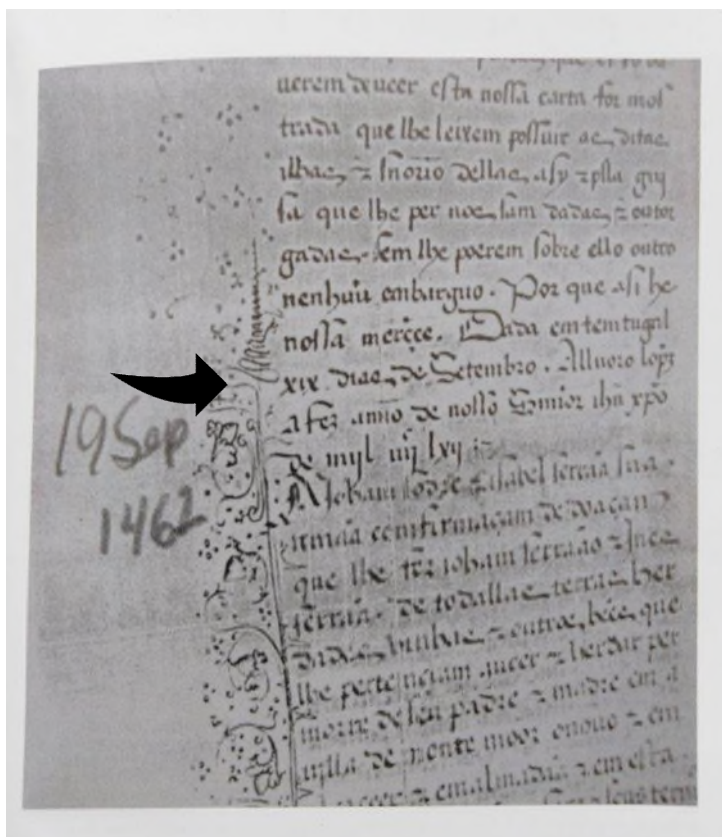 uerem de ucer esta nossa carta for mos
trada que lhe leixem possuir as ditas
ilhas, z sñorio dellas, asy z pella guy
sa que lhe per nos, sam dadas, z outor
gadas, sem lhe poerem sobre ello outro
nenhuũ embarguo. Por que asi he
nossa merçee. Dada em tentugal
xix dias, de Setembro. Alluoro lopz
a fez anno de nosso Señior ihũ xpõ
de mjl iiij lxij
19 Sep
1462
A Joham z isabel ferrãa sua
irmãa comfirmaçam de doaçan
que lhe fez joham ferrãao z Ines
ferrãa. de todallas, terras, her
dades, vinhas, z outros, bẽes, que
lhe pertençiam auer z herdar per
morte de seu padre z madre em a
uilla de monte moor o nouo z em
z em almadãa z em esta